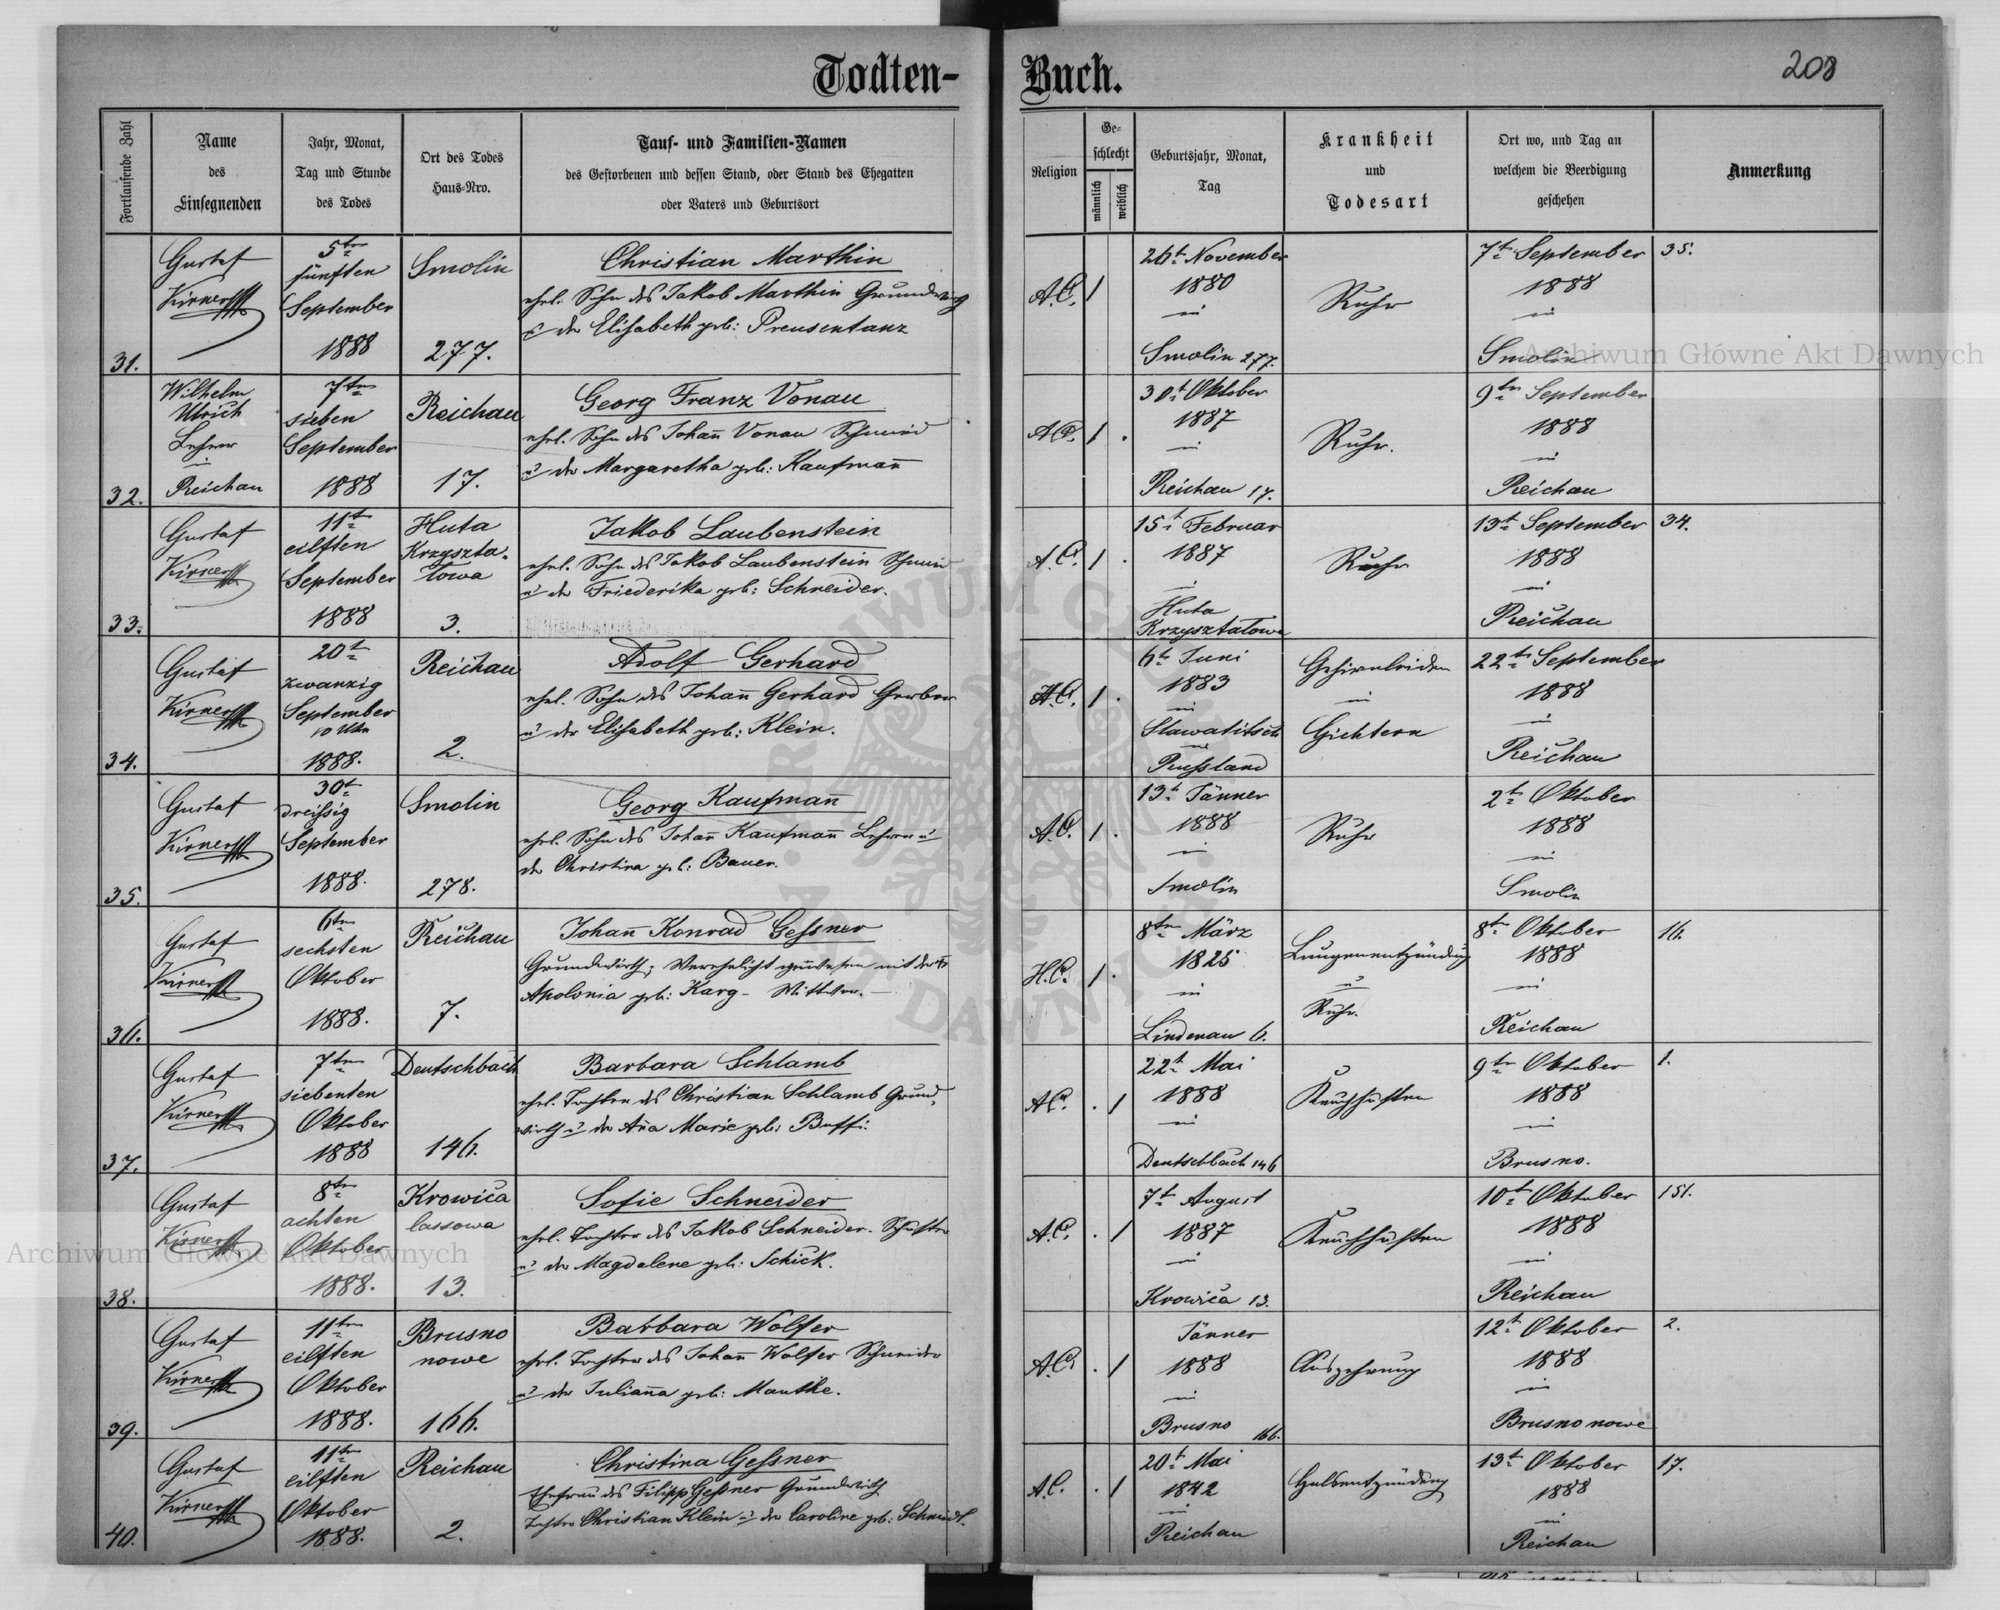 Todten-Buch.
208
Fortlaufende Zahl
Name
des
Einsegnenden
Jahr, Monat,
Tag und Stunde
des Todes
Ort des Todes
Haus-Nro.
Tauf- und Familien-Namen
des Gestorbenen und dessen Stand, oder Stand des Ehegatten
oder Vaters und Geburtsort
Religion
Ge-
schlecht
männlich
weiblich
Geburtsjahr, Monat,
Tag
Krankheit
und
Todesart
Ort wo, und Tag an
welchem die Beerdigung
geschehen
Anmerkung
31.
Gustaf
5ten
fünften
September
1888
Smolin
277.
Christian Marthin
ehel. Sohn des Jakob Marthin Grundwirth
u der Elisabeth geb: Preusentanz
A.C.
1
26t November
1880
in
Smolin 277.
Ruhr
7t September
1888
in
Smolin
35.
32.
Wilhelm
Ulrich
Lehrer
in
Reichau
7ten
sieben
September
1888
Reichau
17.
Georg Franz Vonau
ehel. Sohn des Johan̄ Vonau Schmied
u der Margaretha geb: Kaufman̄
A.C.
1 .
30t Oktober
1887
in
Reichau 17.
Ruhr.
9ten September
1888
in
Reichau
33.
Gustaf
11t
eilften
September
1888
Huta
Krzyszta-
towa
3.
Jakob Laubenstein
ehel. Sohn des Jakob Laubenstein Schmied
u der Friederika geb: Schneider.
A.C.
1 .
15t Februar
1887
Huta
Krzysztatowa
Ruhr
13t September
1888
in
Reichau
34.
34.
Gustaf
20t
zwanzig
September
10 Uhr
1888.
Reichau
2.
Adolf Gerhard
ehel. Sohn des Johan̄ Gerhard Gerber
u der Elisabeth geb: Klein.
A.C.
1 .
6t Juni
1883
in
Slawatitsch
Russland
Gehirnleiden
in
Gichtern
22ten September
1888
in
Reichau
35.
Gustaf
30t
dreißig
September
1888.
Smolin
278.
Georg Kaufman̄
ehel. Sohn des Johan̄ Kaufman̄ Lehrer u
der Christina geb: Bauer.
A.C.
1 .
13t Jänner
1888
in
Smolin
Ruhr
2t Oktober
1888
in
Smolin
36.
Gustaf
6ten
sechsten
Oktober
1888.
Reichau
7.
Johan̄ Konrad Gessner
Grundwirth; Verehelicht gewesen mit der
Apolonia geb: Karg - Wittwer.
H.C.
1 .
8ten März
1825
in
Lindenau 6.
Lungenentzündung
u
Ruhr.
8ten Oktober
1888
in
Reichau
16.
37.
Gustaf
7ten
siebenten
Oktober
1888
Deutschbach
146.
Barbara Schlamb
ehel. Tochter des Christian Schlamb Grund-
wirth u der An̄a Marie geb:
A.C.
. 1
22t Mai
1888
in
Deutschbach 146
Keuchhusten
9ten Oktober
1888
in
Brusno.
1.
38.
Gustaf
8ten
achten
Oktober
1888.
Krowica
lassowa
13.
Sofie Schneider
ehel. Tochter des Jakob Schneider. Schuster
u der Magdalene geb: Schick.
A.C.
. 1
7t August
1887
in
Krowica 13.
Keuchhusten
10t Oktober
1888
in
Reichau
151.
39.
Gustaf
11ten
eilften
Oktober
1888.
Brusno
nowe
166.
Barbara Wolfer
ehel. Tochter des Johan̄ Wolfer Schneider
u der Julian̄a geb: Manthe.
A.C.
. 1
Jänner
1888
in
Brusno 166.
Auszehrung
12t Oktober
1888
in
Brusno nowe
2.
40.
Gustaf
11ten
eilften
Oktober
1888.
Reichau
2.
Christina Gessner
Ehefrau des Filipp Gessner Grundwirth
Tochter Christian Klein u der Caroline geb: Schmidt.
A.C.
. 1
20t Mai
1842
in
Reichau
Halsentzündung
13t Oktober
1888
in
Reichau
17.
Archiwum Główne Akt Dawnych
Archiwum Główne Akt Dawnych